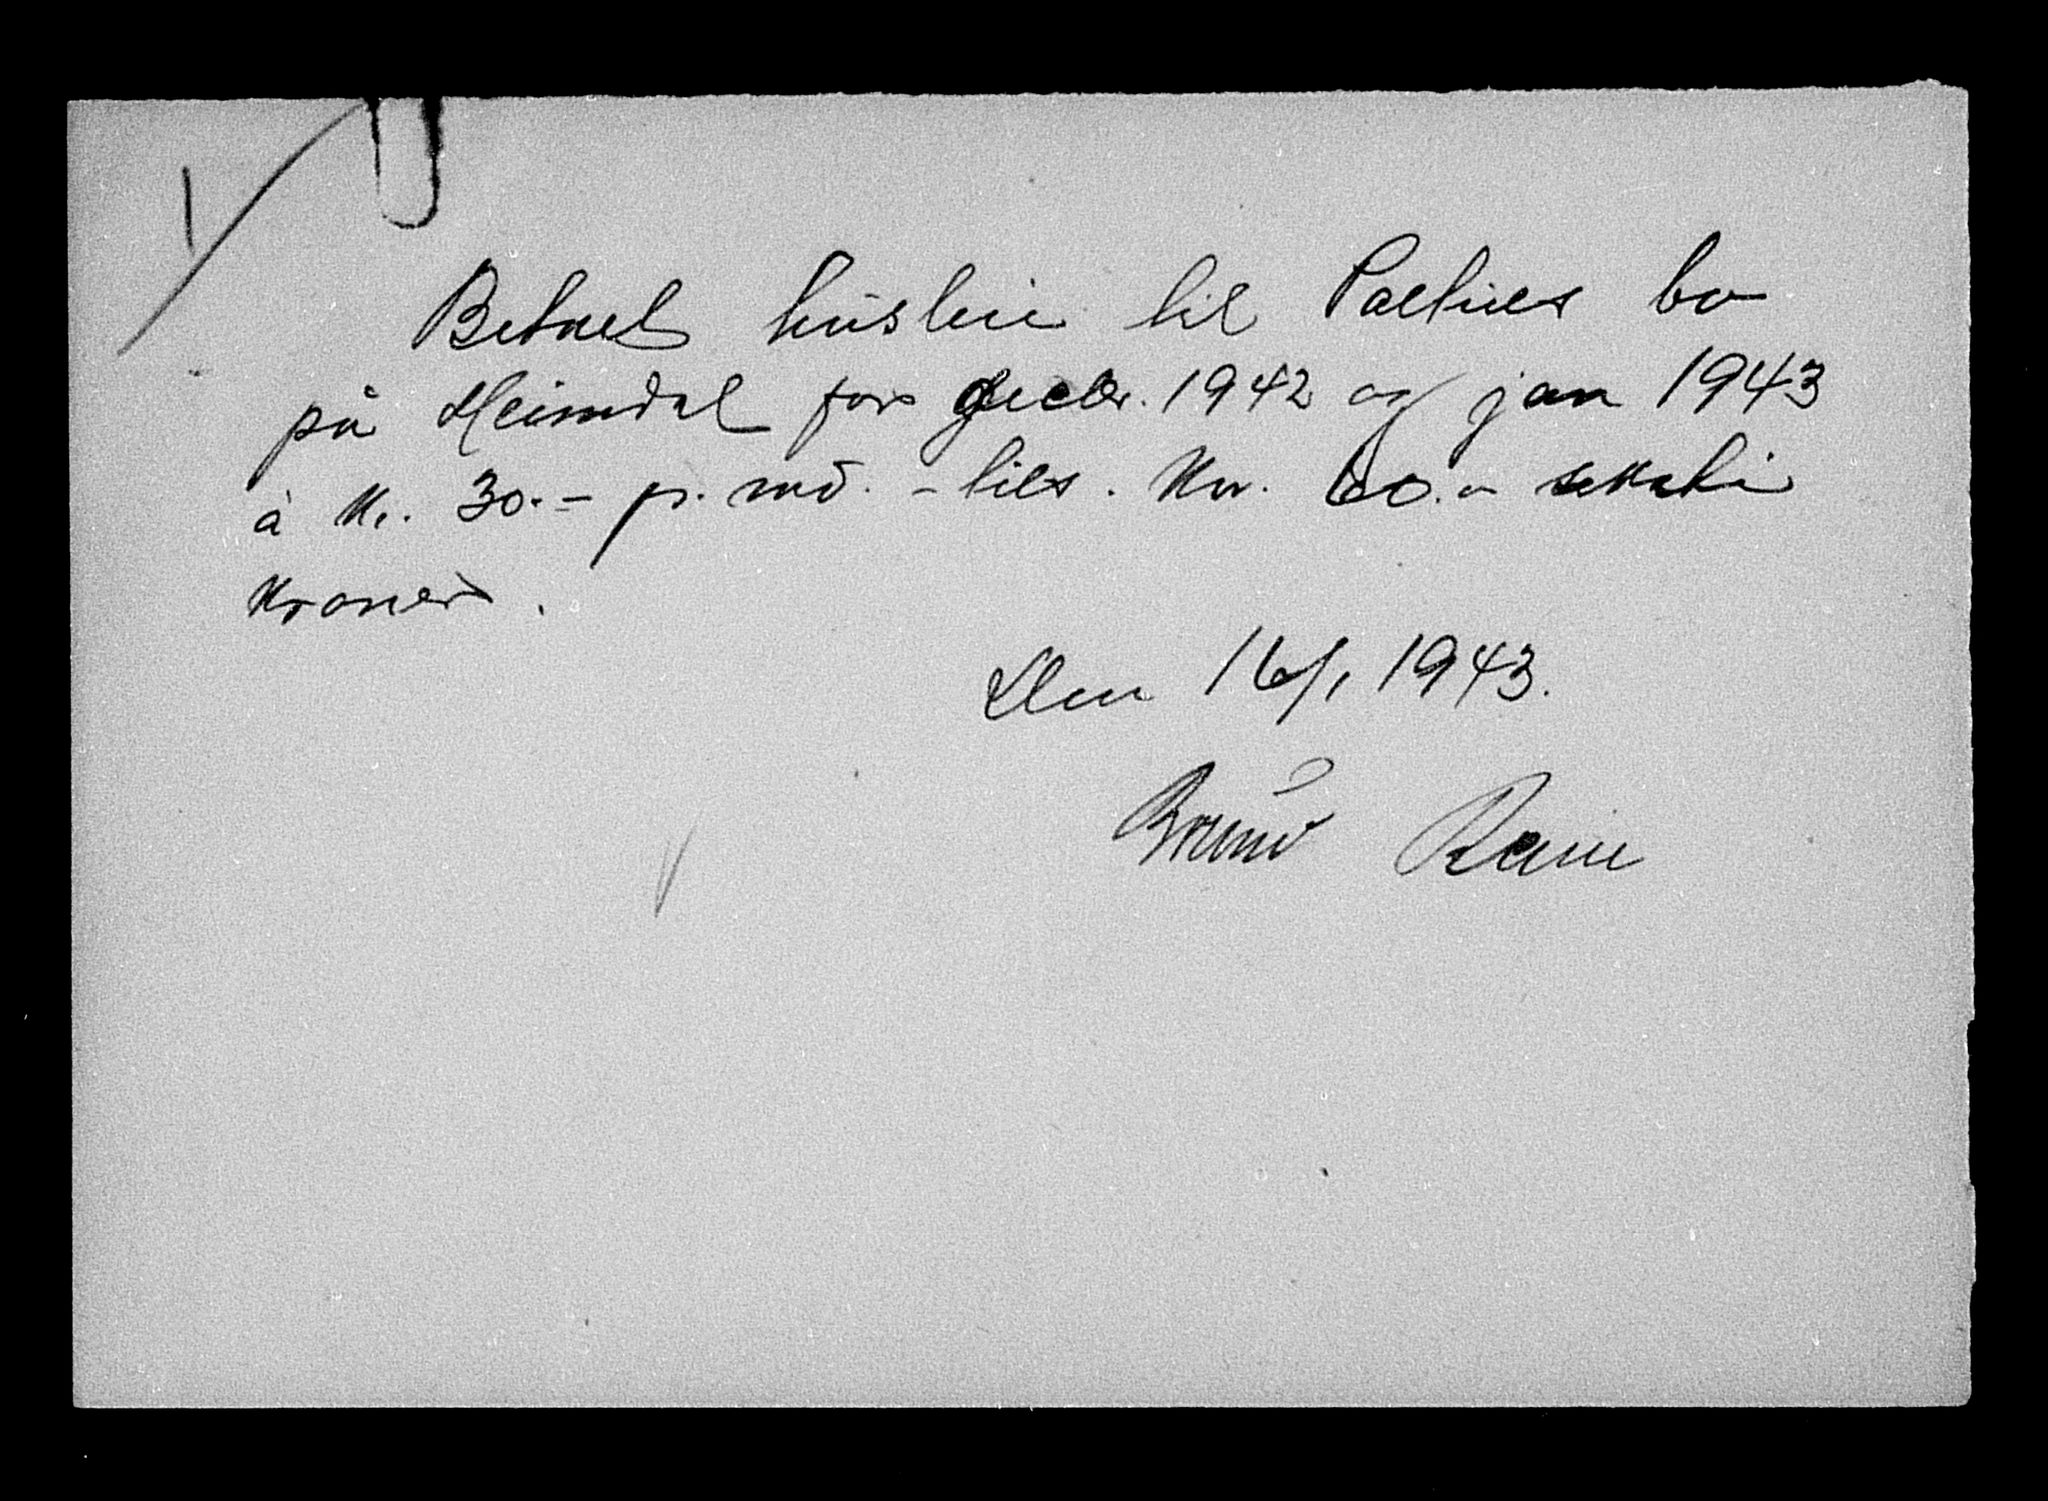 Betalt husleie til Paltiels bo
på Heimdal for decbr. 1942 og jan 1943
à Kr. 30.- pr. md. - tils. Kr. 60.- seksti
Kroner.
Den 16/1 1943.